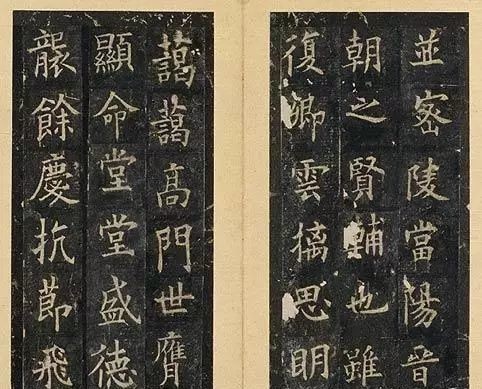 並密陵當陽晉
朝之賢輔也雖
復卿雲摛思朙
藹藹高門世膺
顯命堂堂盛德
襲餘慶抗節飛